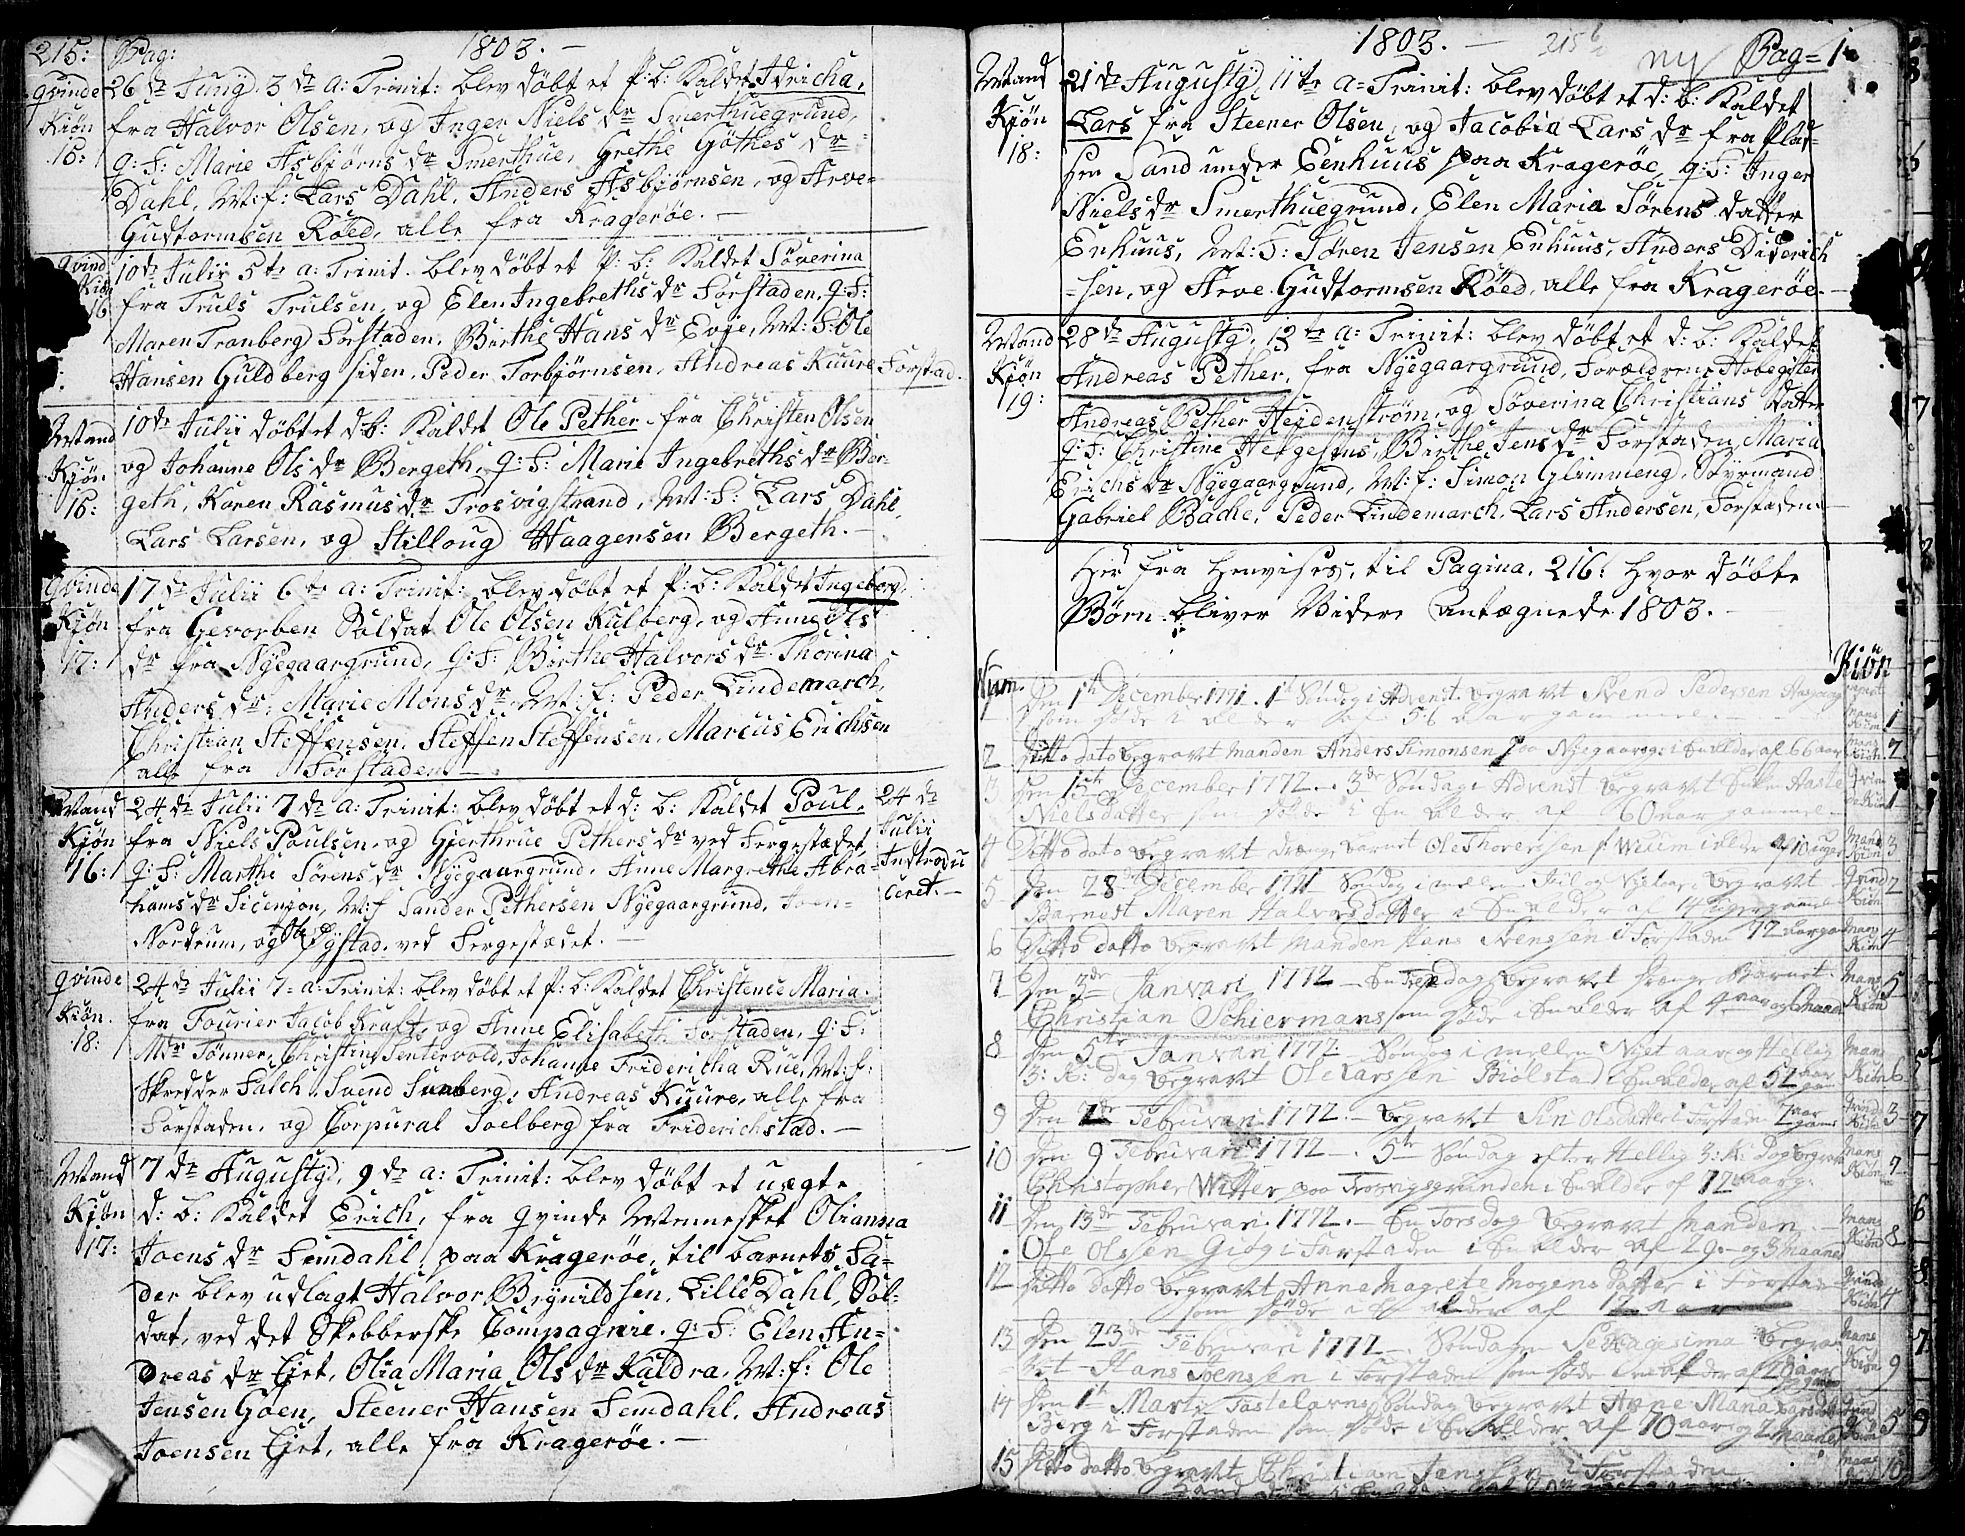 215: Pag: 1803. —
Qvinde Kiøn 15:
26 de Junij. 3 de a: Trinit: blev døbt et P: b: Kaldet Idricha,
fra Halvor Olsen, og Inger Niels dr Smerthuegrund,
q: F: Marie Asbjørns dr Smerthue, Grethe Gøthes dr
Dahl, M: f: Lars Dahl, Anders Asbjørnsen, og Arve=
Gudtormsen Røed, alle fra Kragerøe. —
Qvind Kiøn 16
10 de Julii 5 te a: Trinit. blev døbt et P: b: Kaldet Søverina
fra Truls Trulsen, og Elen Ingebreths dr Forstaden, q: F:
Maren Tranberg Forstaden, Birthe Hans dr Evje, M: F: Ole
Hansen Guldberg siden, Peder Torbjørnsen, Andreas Kuure Forstad.
Mand Kjøn 15:
10 de Julii døbt et d: b: Kaldet Ole Pether fra Christen Olsen
og Johanne Ols dr Bergeth, q: F: Marie Ingebreths dr Ber-
geth, Karen Rasmus dr Trosvigstrand, M: F: Lars Dahl,
Lars Larsen, og Stilloug Haagensen Bergeth. —
Qvinde Kjøn 17:
17 de Julii 6 te a: Trinit: blev døbt et P: b: Kaldet Ingeborg,
fra Gevorben Soldat Ole Olsen Kulberg, og Anne Ols
dr fra Nyegaargrund, q: F: Birthe Halvors dr Thorina
Anders dr, Marie Mons dr, M: f: Peder Lindemarch,
Christian Steffensen, Steffen Steffensen, Marcus Erichsen
alle fra Forstaden —
Mand Kjøn 16:
24 de Julii 7 de a: Trinit: blev døbt et d: b: Kaldet Poul,
fra Niels Poulsen, og Gjerthrue Pethers dr ved Fergestædet,
q: F: Marthe Sørens dr Nyegaargrund, Anne Margrethe Abra-
hams dr Sicenjon, M: f Sander Pethersen Nyegaargrund, Joen-
Nordrum, og Ole Systad, ved Fergestædet. —
24 de Julii Introdu ceret. —
Qvinde Kiøn. 18:
24 de Julii 7= a: Trinit: blev døbt et P: b: Kaldet Christence Maria.
fra Fourier Jacob Kraft, og Anne Elisabeth Forstaden, q: F:
Mdr Tønner, Christine Sentervold, Johanne Fridericha Rue, M: f:
Skredder Falch, Svend Svanberg, Andreas Kuure, alle fra
Forstaden, og Corpural Soelberg fra Friderichstad. —
Mand Kjøn 17:
7 de Augustij, 9 de a: Trinit: blev døbt et uægte
d: b: Kaldet Erich, fra qvinde Mennesket Olianna
Joens dr Semdahl, paa Kragerøe, til barnets Fa=
der blev udlagt Halvor Brynildsen, Lille Dahl, Sol-
dat, ved det Skebberske Compagnie. q: F: Elen An=
dreas dr Eiet, Olia Maria Ols dr Kaldra, M: f: Ole
Jensen Goen, Steener Hansen Semdahl, Andreas
Joensen Eiet, alle fra Kragerøe. —
1803. — 215 b/2 ny Pag=1
Mand Kjøn 18:
21 de Augustij, 11 te a= Trinit: blev døbt et d: b: Kaldet
Lars fra Steener Olsen, og Jacobia Lars dr fra Plad=
sen Sand under Eenhuus paa Kragerøe, q: F: Inger
Niels dr Smerthuegrund, Elen Maria Sørens datter
Enhuus, M: F: Søren Jensen Enhuus, Anders Diderich
=sen, og Arve Gudtormsen Røed, alle fra Kragerøe. —
Mand Kjøn 19:
28 de Augustij, 12 te a: Trinit: blev døbt et d: b: Kaldet
Andreas Pether, fra Nyegaargrund, Forældrene Hobegister
Andreas Pether Heidenstrøm, og Søverina Christians datter
q: F: Christine Helgesens, Birthe Jens dr Forstaden, Maria
Erichs dr Nyegaargrund, M: f: Simon Glimmeng, Styrmand
Gabriel Bache, Peder Lindemarch, Lars Andersen, Forstaden —
Her fra henvises, til Pagina. 216: hvor døbte
Børn bliver Videre antægnede 1803. —
Num. Kiøn
Den 1te December 1771. 1te Søndag i Advendt begravet Svend Pedersen
som døde i alder af 56 aar gammel — Mans Kiøn 1
2 Ditto dato begravet manden Anders Simonsen paa Nyegaarsg: i En alder af 66 aar Mans Kiøn 2
3 Den 15th December 1772 — 3de Søndag i Advendt begravet
Nielsdatter som døde i En alder af 60 aar gammel — Qvinde Kiøn 1
4 Ditto dato begravet drænge barnet Ole Thoressen i alder af 10 uger Mand Kiøn 3
5 Den 28de December 1771 — Søndag imellem Juel og Nyetaar begravet
Barnest Maren Halvorsdatter i En alder af 14 Qvind Kiøn 2
6 Ditto datto begravet manden Hans Svenssen i Forstaden 72 aar Mans Kiøn 4
7 Den 3de Januari 1772 — En Fredag begravet drænge Barnet
Christian Schiermans som døde i En alder af 4 aar og 6 maan Mans Kiøn 5
8 Den 5te Januari 1772 Søndag imellem Nyet aar og Hellig
3: K: dag begravet Ole Larssen Biølstad i En alder af 52 aar Mans Kiøn 6
9 Den 2de Februari 1772. — Begravet Siri Olsdatter i Forstaden 7 aar gam Qvind Kiøn 3
10 Den 9 Februari 1772 — 5te Søndag efter Hellig 3: K: Dag begravet
Christopher Witter paa Trosvigsgrunden i En alder af 72 aar g: Mans Kiøn 7
11 Den 13de Februari 1772. — En Torsdag begravet manden —
Ole Olssen Giøg i Forstaden i En alder af 29 og 3 maaned Mans Kiøn 8
12 Ditto datto begravet Anne Magrete Mogens datter i Forstad
som døde i En alder af 12 aar Qvinde Kiøn 4
13 Den 23de Februari 1772 — Søndagen Sexagesima begra
vet Hans Joenssen i Forstaden som døde i En alder af 28 aar Mans Kiøn 9
14 Den 1te Marti Fastelavns Søndag begravet Anne Maria Larsdatter
Berg i Forstaden som døde i En alder af 70 aar og 2 maaned Qvind Kiøn 5
15 Ditto datto begravet Christian Jenssen i Forstaden Mans 10